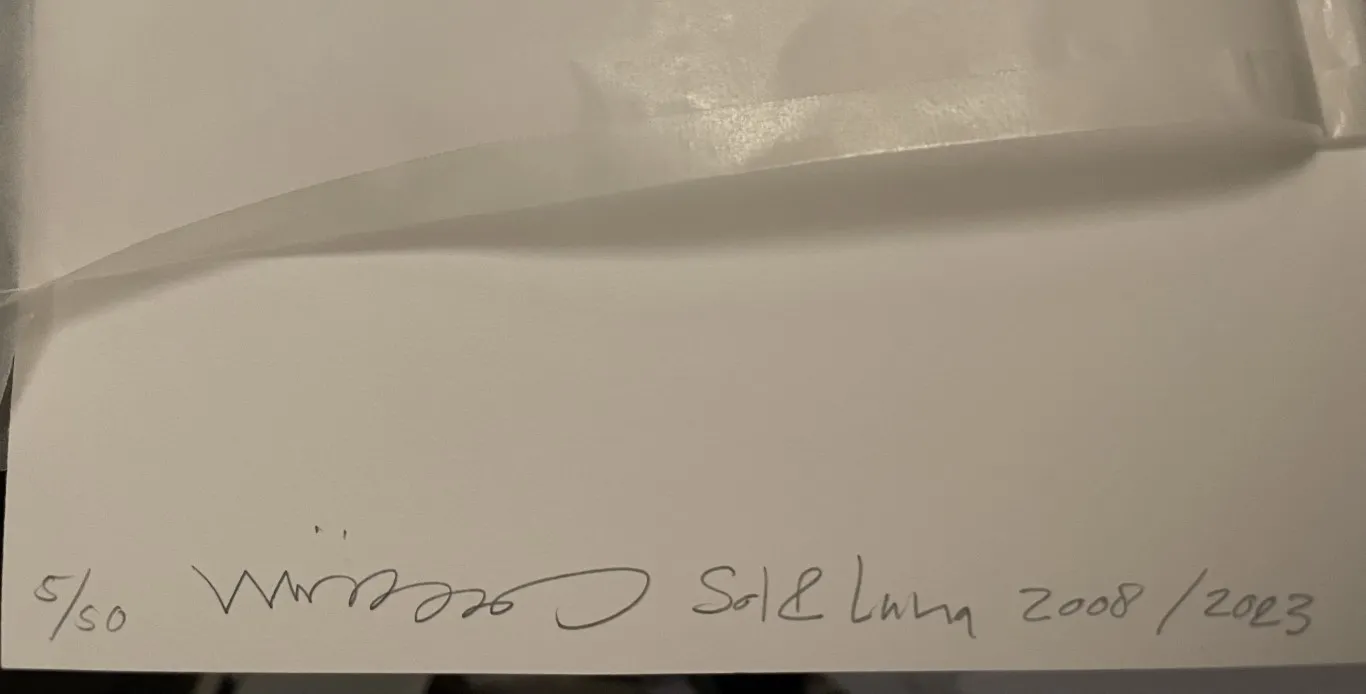 5/50 Sol & Luna 2008/2023